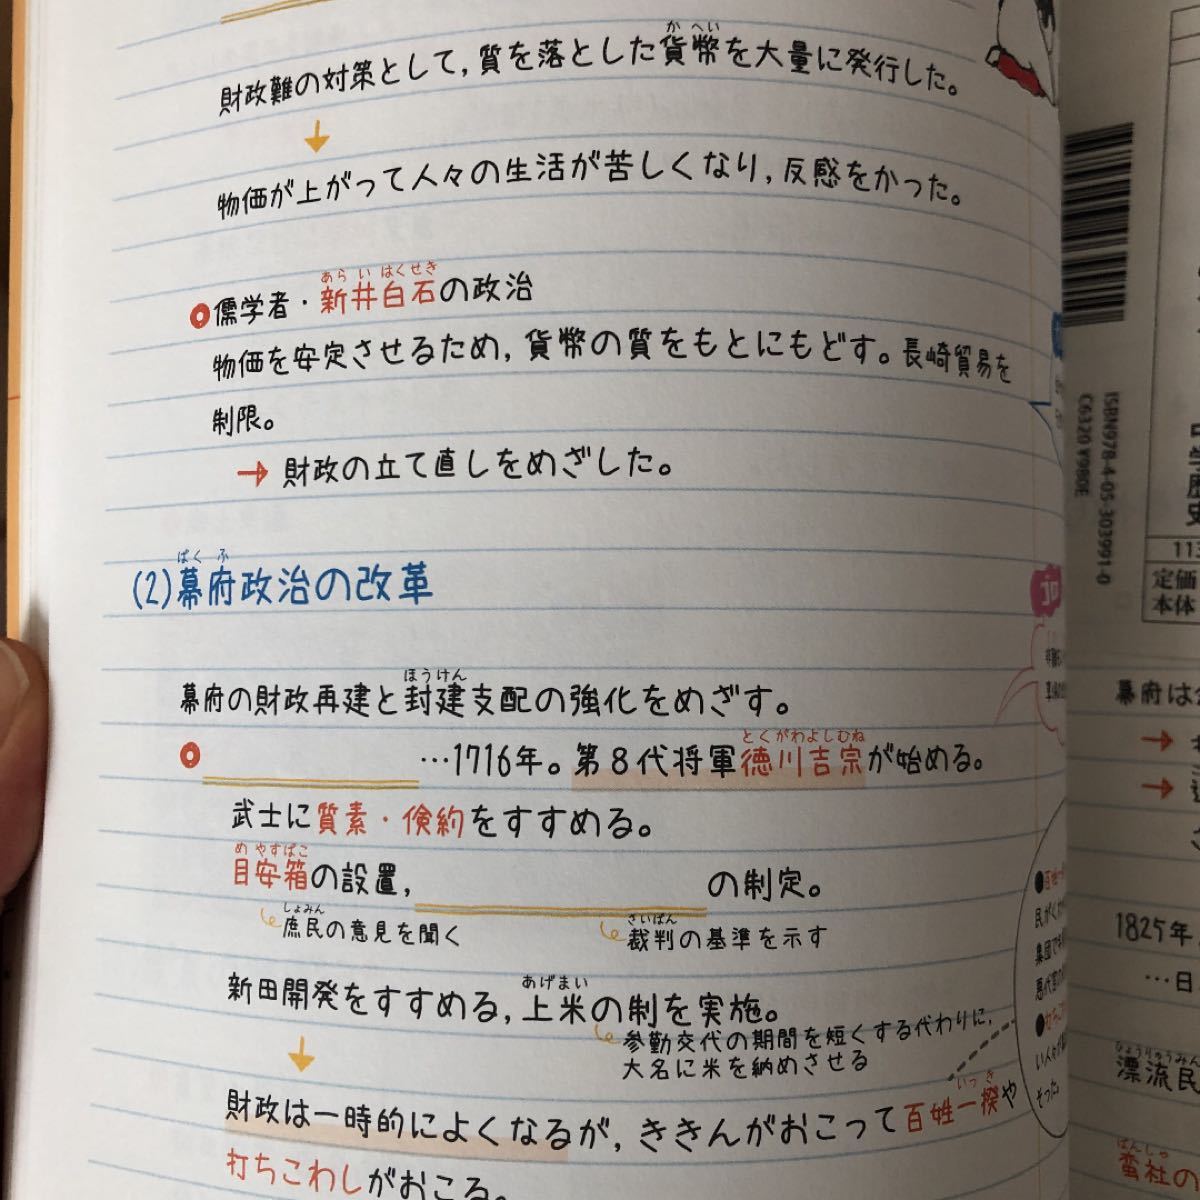 財政難の対策として,質を落とした貨幣を大量に発行した。
か へい
↓
物価が上がって人々の生活が苦しくなり,反感をかった。
あら い はくせき
儒学者・新井白石の政治
物価を安定させるため,貨幣の質をもとにもどす。長崎貿易を
制限。
→ 財政の立て直しをめざした。
ばく ふ
(2)幕府政治の改革
ほうけん
幕府の財政再建と封建支配の強化をめざす。
とくがわよしむね
…1716年。第8代将軍徳川吉宗が始める。
武士に質素・倹約をすすめる。
め やすばこ
目安箱の設置, の制定。
しょみん
庶民の意見を聞く
さいばん
裁判の基準を示す
あげまい
新田開発をすすめる,上米の制を実施。
参勤交代の期間を短くする代わりに,
大名に米を納めさせる
↓
いっ き
財政は一時的によくなるが,ききんがおこって百姓一揆や
打ちこわしがおこる。
ゴロ
ISBN978-4-05-303991-0
C6320 ¥980E
定価
本体
幕府は
→
→
1825年
…日
ひょうりゅうみん
漂流民
ばんしゃ
蛮社の